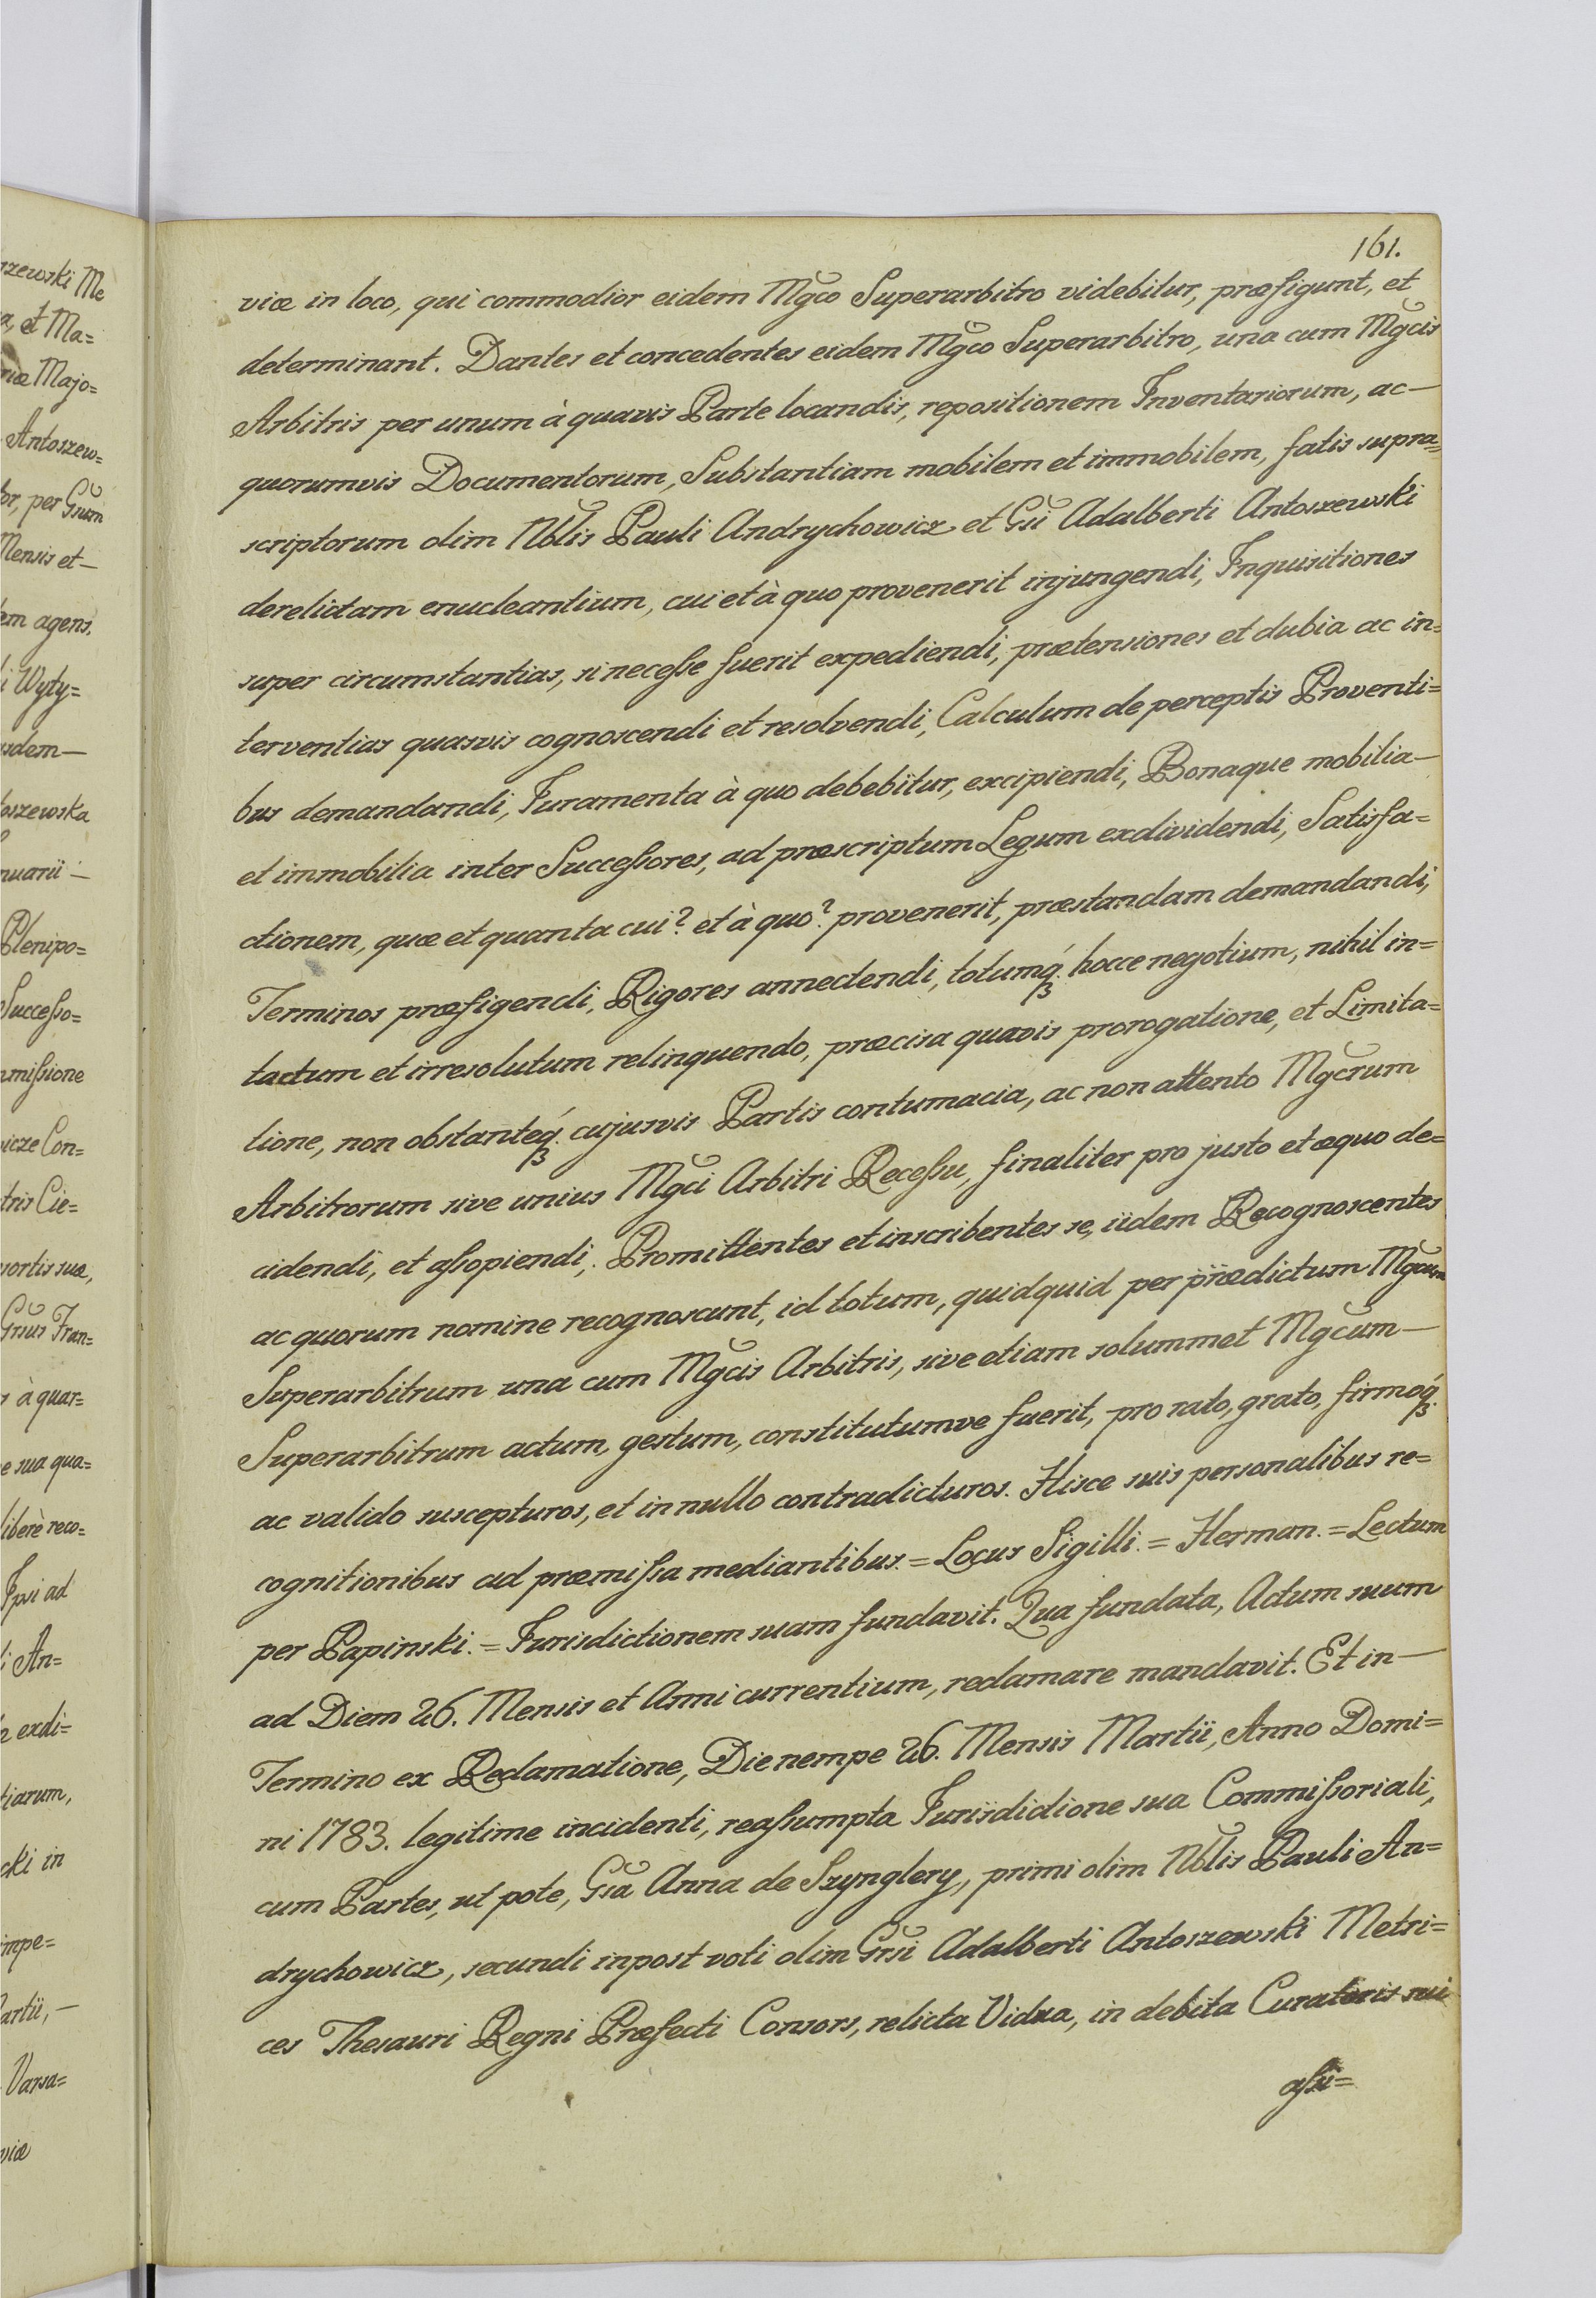 161.
viæ in loco, qui commodior eidem Mgco Superarbitro videbitur, præfigunt, et
determinant. Dantes et concedentes eidem Mgco Superarbitro, una cum Mgcis
Arbitris per unum à quavis Parte locandis, repositionem Inventariorum, ac —
quorumvis Documentorum, Substantiam mobilem et immobilem, fatis supra=
scriptorum olim Nblis Pauli Andrychowicz et Gsi Adalberti Antoszewski
derelictam enucleantium, cui et à quo provenerit injungendi, Inquisitiones
super circumstantias, si necesse fuerit expediendi, prætensiones et dubia ac in=
terventias quasvis cognoscendi et resolvendi, Calculum de perceptis Proventi=
bus demandandi, Juramenta à quo debebitur, excipiendi, Bonaque mobilia —
et immobilia inter Successores, ad præscriptum Legum exdividendi, Satisfa=
ctionem, quæ et quanta cui? et à quo? provenerit, præstandam demandandi,
Terminos præfigendi, Rigores annectendi, totumq́ꝫ hocce negotium, nihil in=
tactum et irresolutum relinquendo, præcisa quavis prorogatione, et Limita=
tione, non obstanteq́ꝫ cujusvis Partis contumacia, ac non attento Mgcrum
Arbitrorum sive unius Mgci Arbitri Recessu, finaliter pro justo et æquo de=
cidendi, et assopiendi; Promittentes et inscribentes se, iidem Recognoscentes
ac quorum nomine recognoscunt, id totum, quidquid per prædictum Mgcum
Superarbitrum una cum Mgcis Arbitris, sive etiam solummet Mgcum —
Superarbitrum actum, gestum, constitutumve fuerit, pro rato, grato, firmoq́ꝫ
ac valido suscepturos, et in nullo contradicturos. Hisce suis personalibus re=
cognitionibus ad præmissa mediantibus. = Locus Sigilli. = Herman. = Lectum
per Papinski. = Jurisdictionem suam fundavit. Qua fundata, Actum suum
ad Diem 26. Mensis et Anni currentium, reclamare mandavit. Et in —
Termino ex Reclamatione, Die nempe 26. Mensis Martii, Anno Domi=
ni 1783. legitime incidenti, reassumpta Jurisdictione sua Commissoriali,
cum Partes, ut pote, Gsa Anna de Szynglery, primi olim Nblis Pauli An=
drychowicz, secundi inpost voti olim Grsi Adalberti Antoszewski Metri=
ces Thesauri Regni Præfecti Consors, relicta Vidua, in debita Curatoris sui
assi=
rzewski Me
a, et Ma=
Majo=
Antoszew=
tor, per Gsum
Mensis et —
em agens,
i Wyty=
sdem —
oszewska
nuarii —
Plenipo=
Successo=
missione
wicze Con=
tris Cie=
sortis suæ,
Grsus Fran=
s à quar=
e sua qua=
liberè reco=
Ipsi ad
i An=
exdi=
tiarum,
cki in
impe=
artii, —
Varsa=
viæ